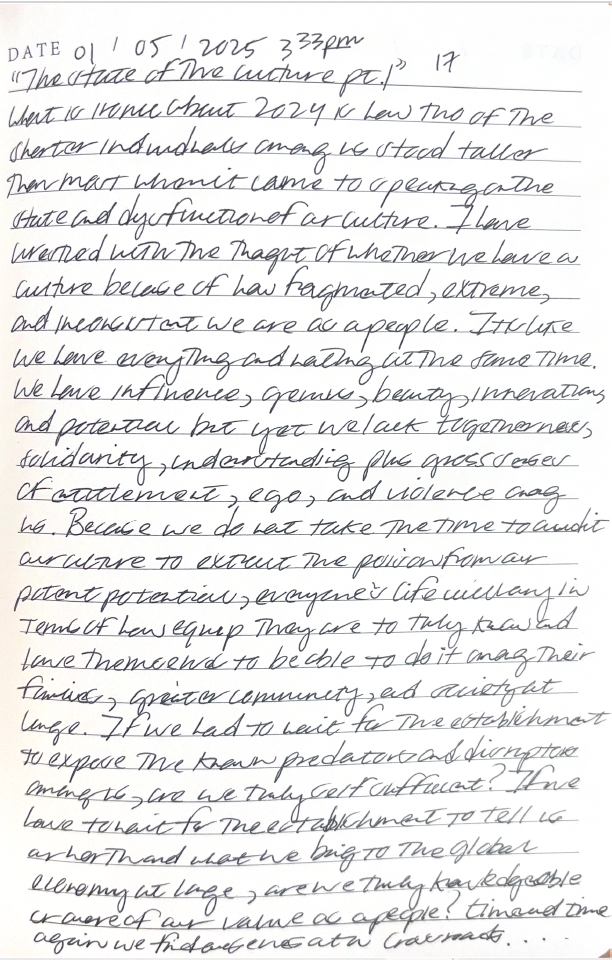 DATE 01 / 05 / 2025 333pm
"The State of The Culture pt. 1" 17
What is ironic about 2024 is how two of The
shorter individuals among us stood taller
Then most when it came to speaking on the
state and dysfunction of our culture. I have
wrestled with The Thought of whether we have a
culture because of how fragmented, extreme,
and inconsistent we are as a people. It's like
we have everything and nothing at The same Time.
We have influence, genius, beauty, innovation,
and potential but yet we lack togetherness,
solidarity, understanding plus gross senses
of entitlement, ego, and violence among
us. Because we do not take The time to audit
our culture to extract The poison from our
potent potential, everyone's life will vary in
Terms of how equip They are to truly know and
love Themselves to be able to do it among Their
families, greater community, and society at
large. If we had to wait for The establishment
to expose The known predators and disruptors
among us, are we truly self sufficient? If we
have to wait for The establishment to tell us
our worth and what we bring to The global
economy at large, are we truly knowledgeable
or aware of our value as a people? time and time
again we find ourselves at a crossroads....